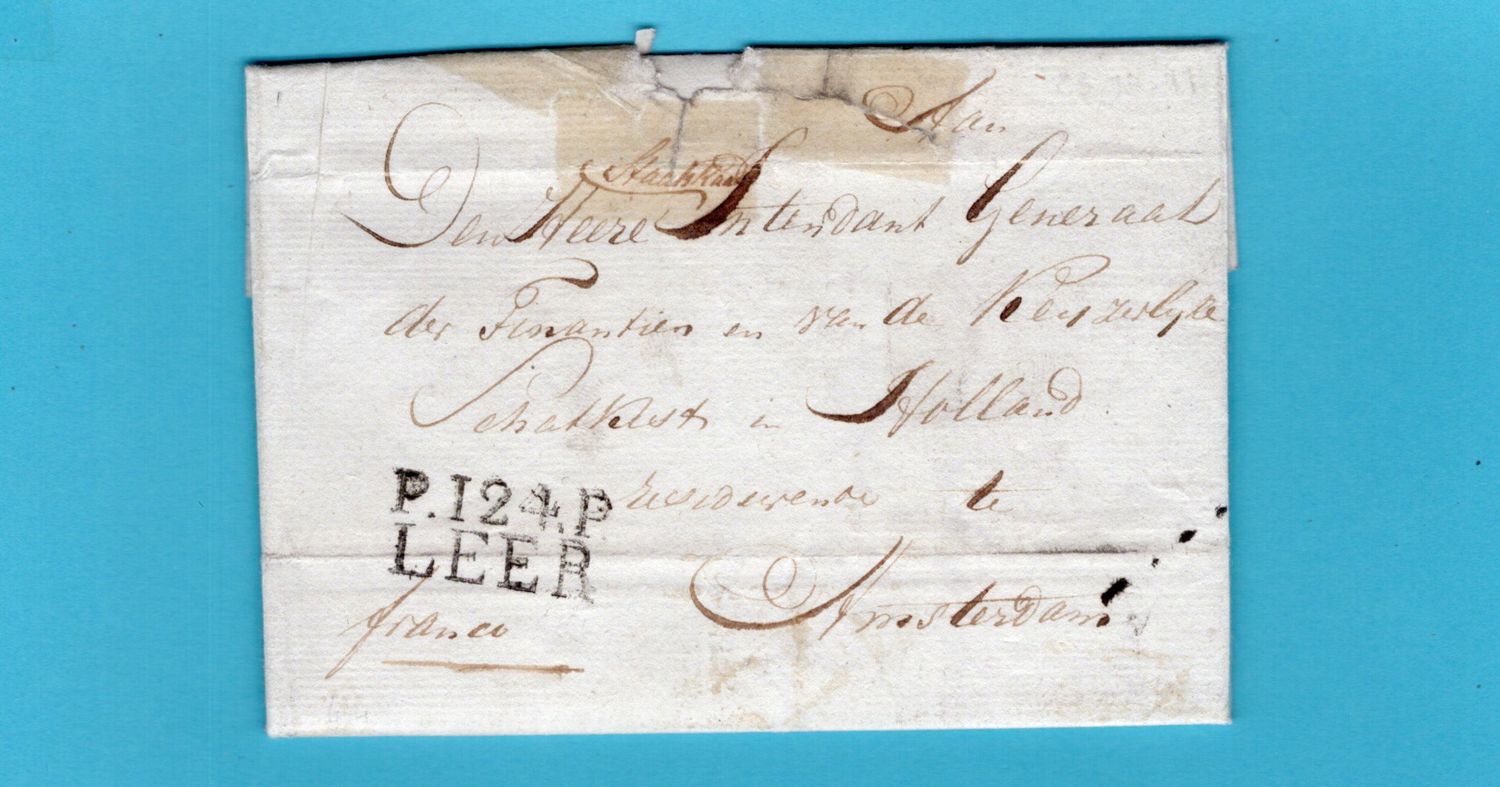 Aan
Staatsraad
Den Heere Intendant Generaal
der Finantien en van de Keyzerlyke
Schatkist in Holland
residerende te
Amsterdam
P.124.P
LEER
franco